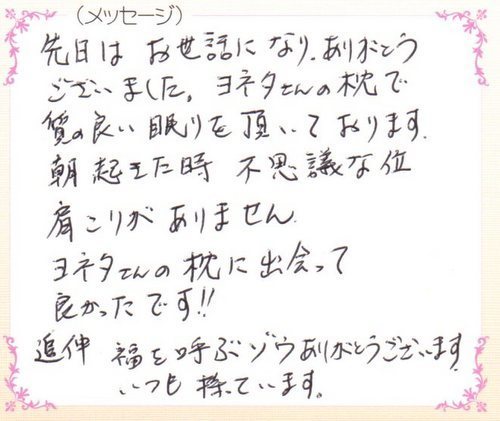 （メッセージ）
先日は お世話になり、ありがとう
ございました。ヨネタさんの枕で
質の良い眠りを頂いております。
朝起きた時 不思議な位
肩こりがありません。
ヨネタさんの枕に出会って
良かったです!!
追伸 福を呼ぶゾウありがとうございます。
いつも 
ています。